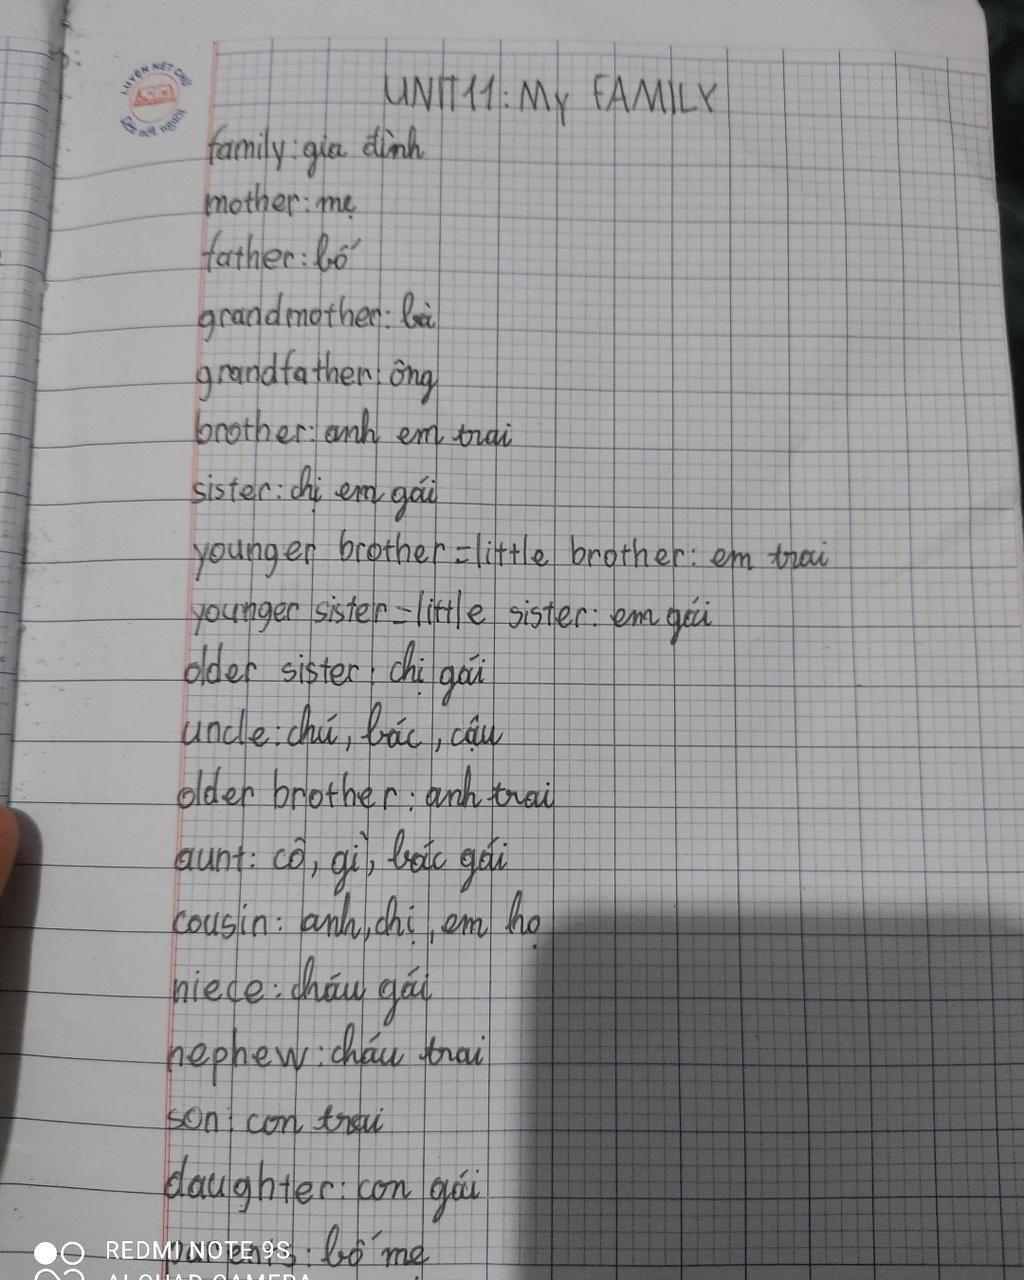 LUYỆN NÉT CHỮ
UNIT11: My FAMILY
family: gia đình
mother: mẹ
father: bố
grandmother: bà
grandfather: ông
brother: anh em trai
sister: chị em gái
younger brother=little brother: em trai
younger sister=little sister: em gái
older sister: chị gái
uncle: chú, bác, cậu
older brother: anh trai
aunt: cô, gì, bác gái
cousin: anh, chị, em họ
niece: cháu gái
nephew: cháu trai
son: con trai
daughter: con gái
parents: bố mẹ
REDMI NOTE 9S